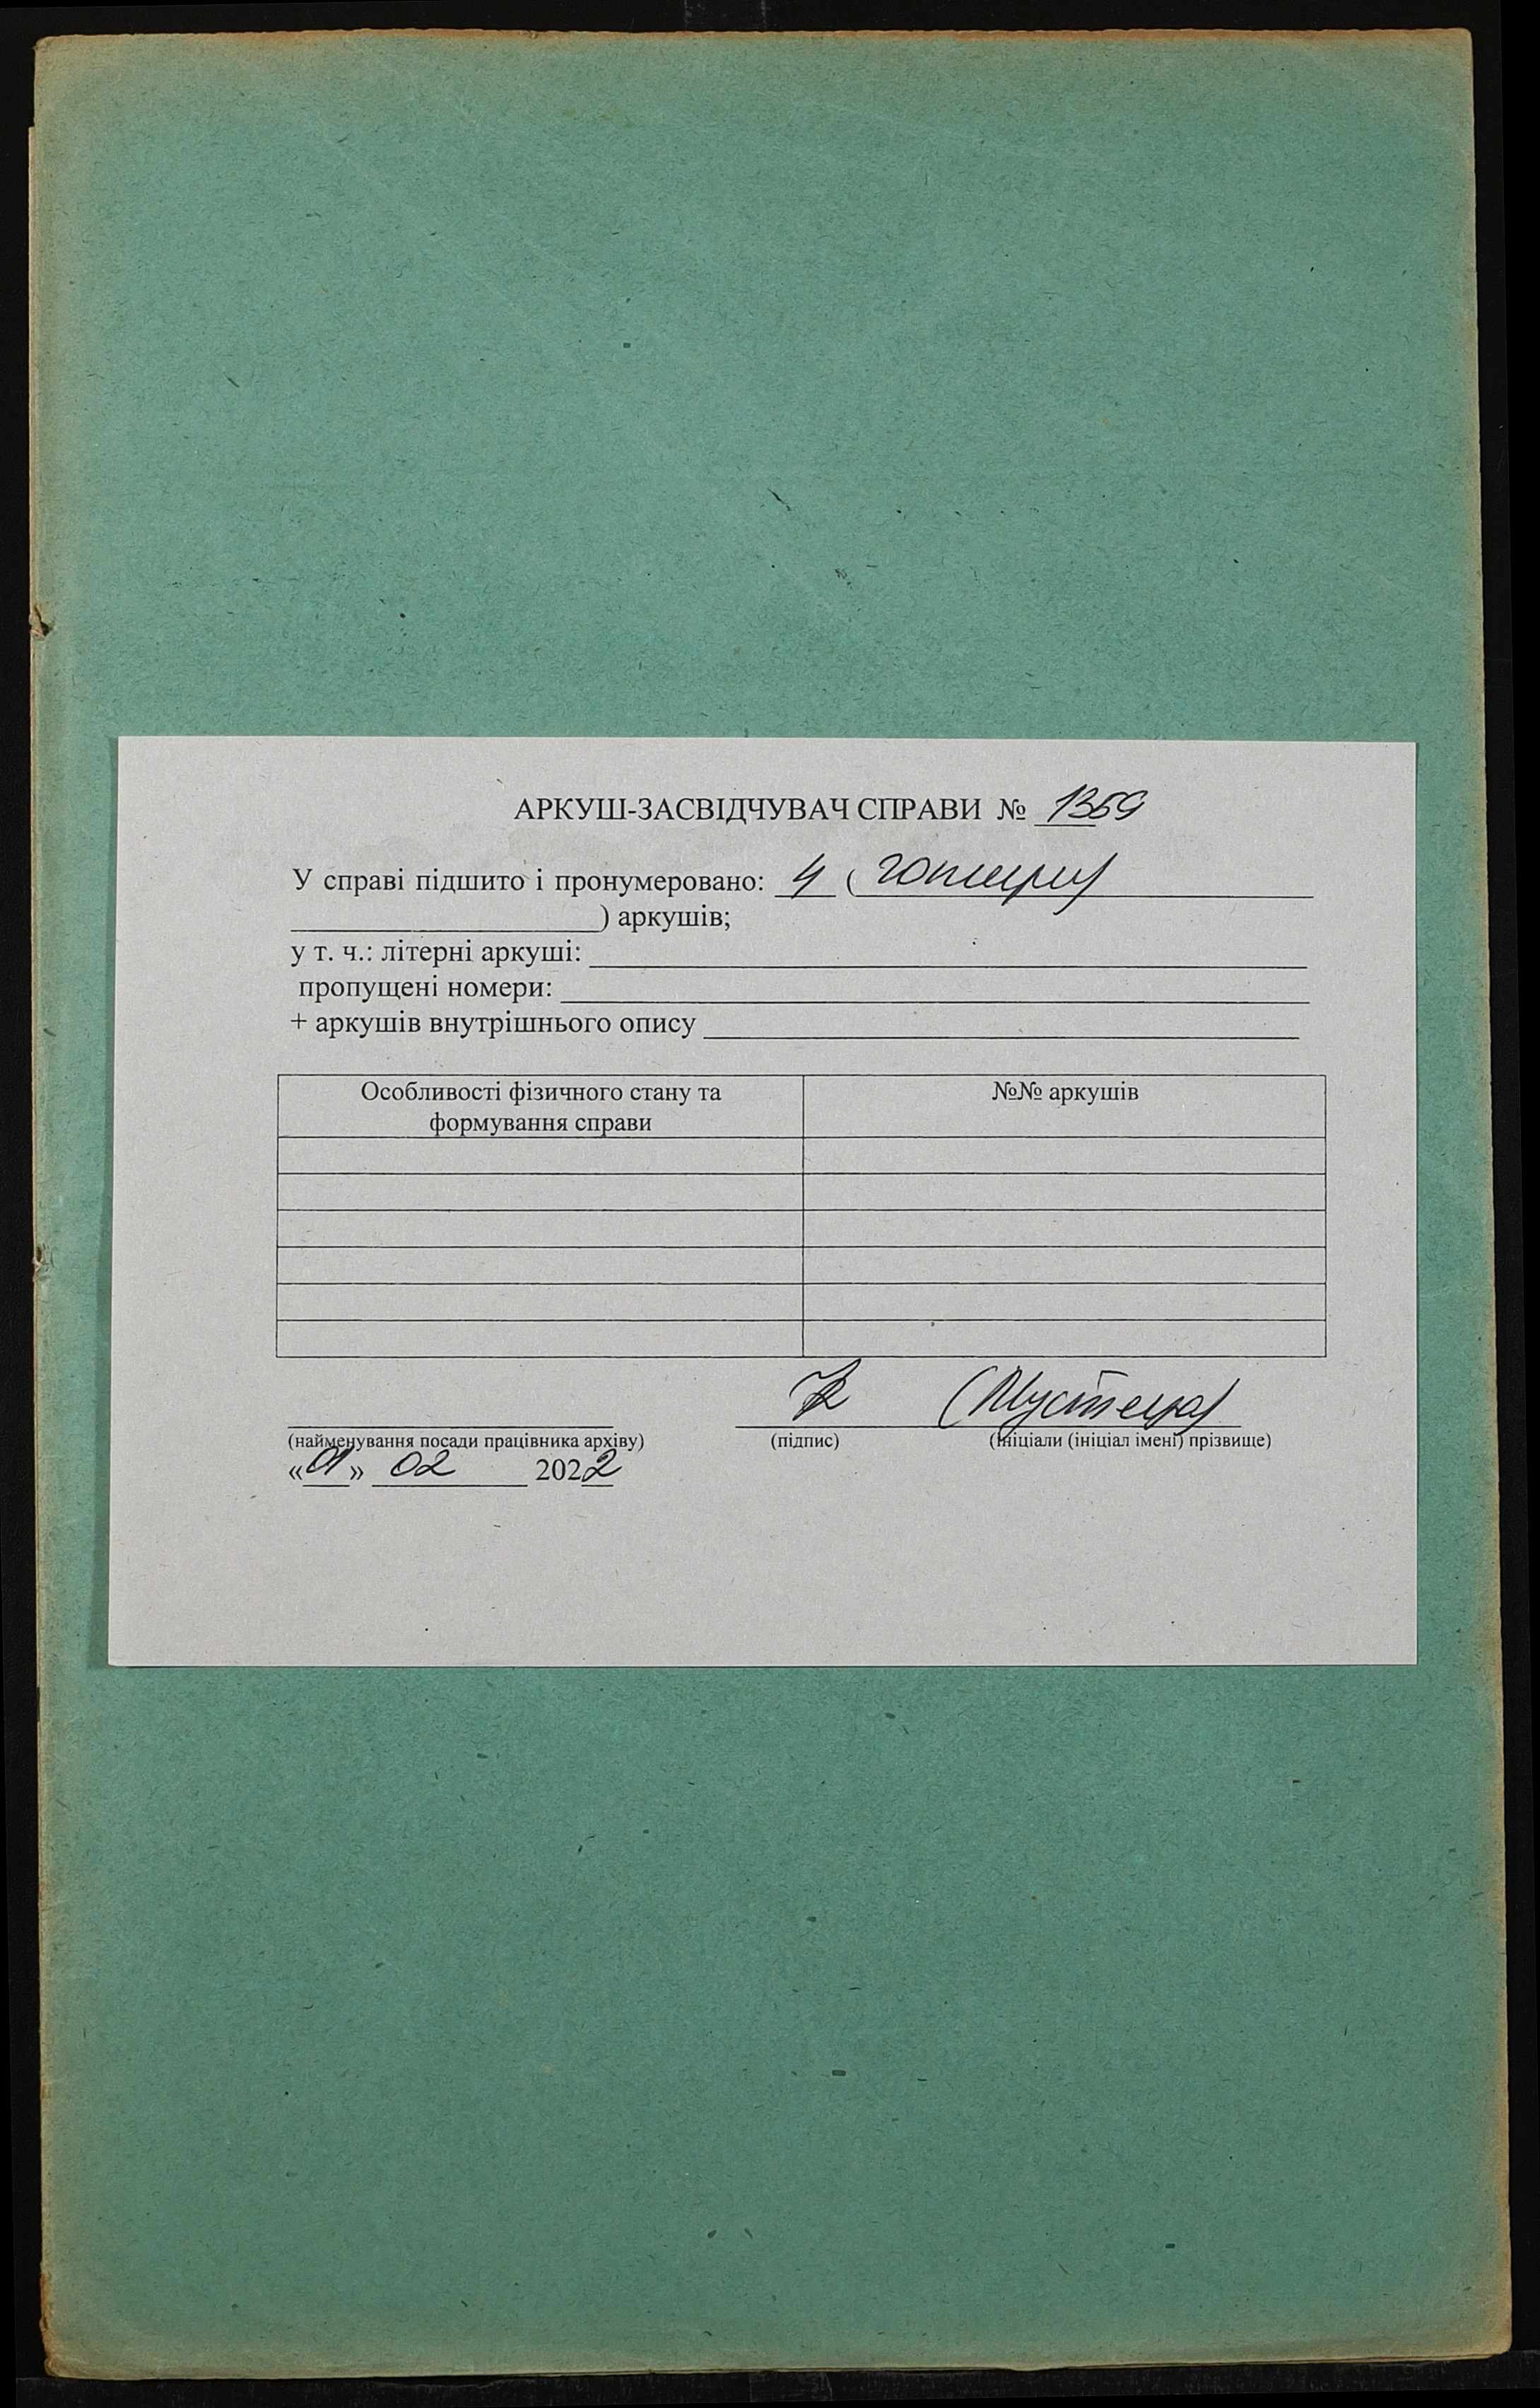 АРКУШ-ЗАСВІДЧУВАЧ СПРАВИ № 1359
У справі підшито і пронумеровано: 4 (чотири
) аркушів;
у т. ч.: літерні аркуші:
пропущені номери:
+ аркушів внутрішнього опису
Особливості фізичного стану та формування справи №№ аркушів
(Мустеца)
(найменування посади працівника архіву) (підпис) (ініціали (ініціал імені) прізвище)
«01» 02 2022